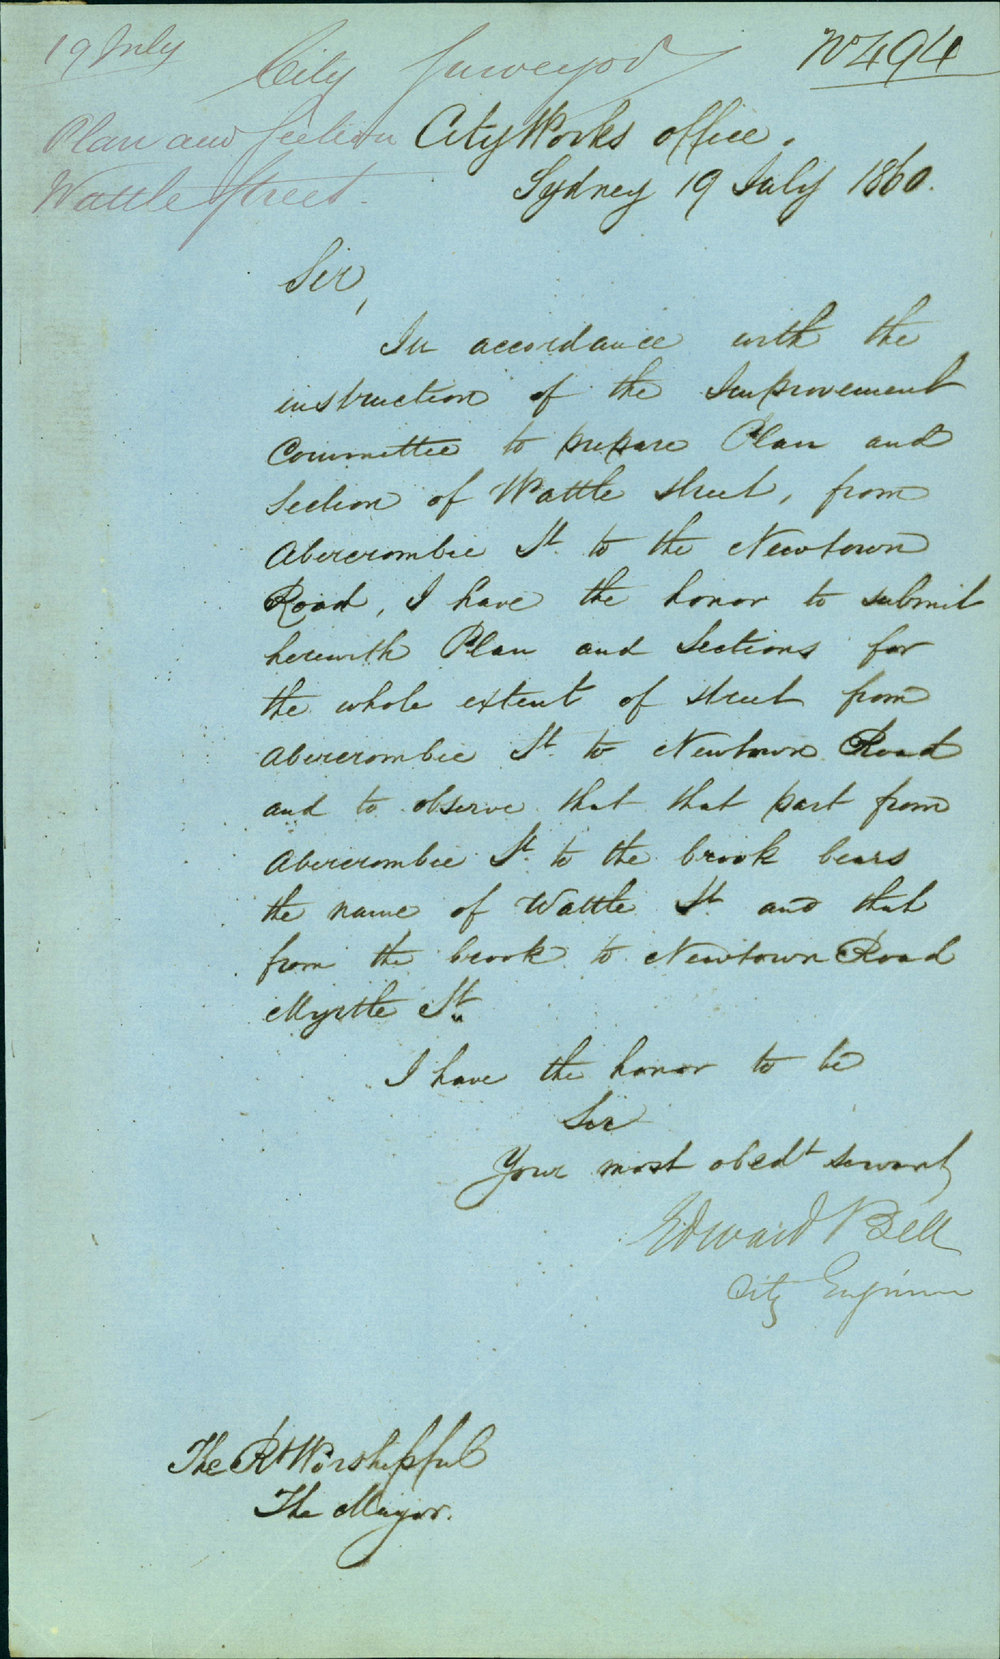 19 July
City Surveyor
No 494
Plan and Section
Wattle Street.
City Works office.
Sydney 19 July 1860.
Sir,
In accordance with the
instruction of the Improvement
Committee to prepare Plan and
Section of Wattle street, from
Abercrombie St. to the Newtown
Road, I have the honor to submit
herewith Plan and Sections for
the whole extent of street from
Abercrombie St. to Newtown Road
and to observe that that part from
Abercrombie St. to the brook bears
the name of Wattle St. and that
from the brook to Newtown Road
Myrtle St.
I have the honor to be
Sir
Your most obedt servant
Edward Bell
City Engineer
The Rt Worshipful
The Mayor.